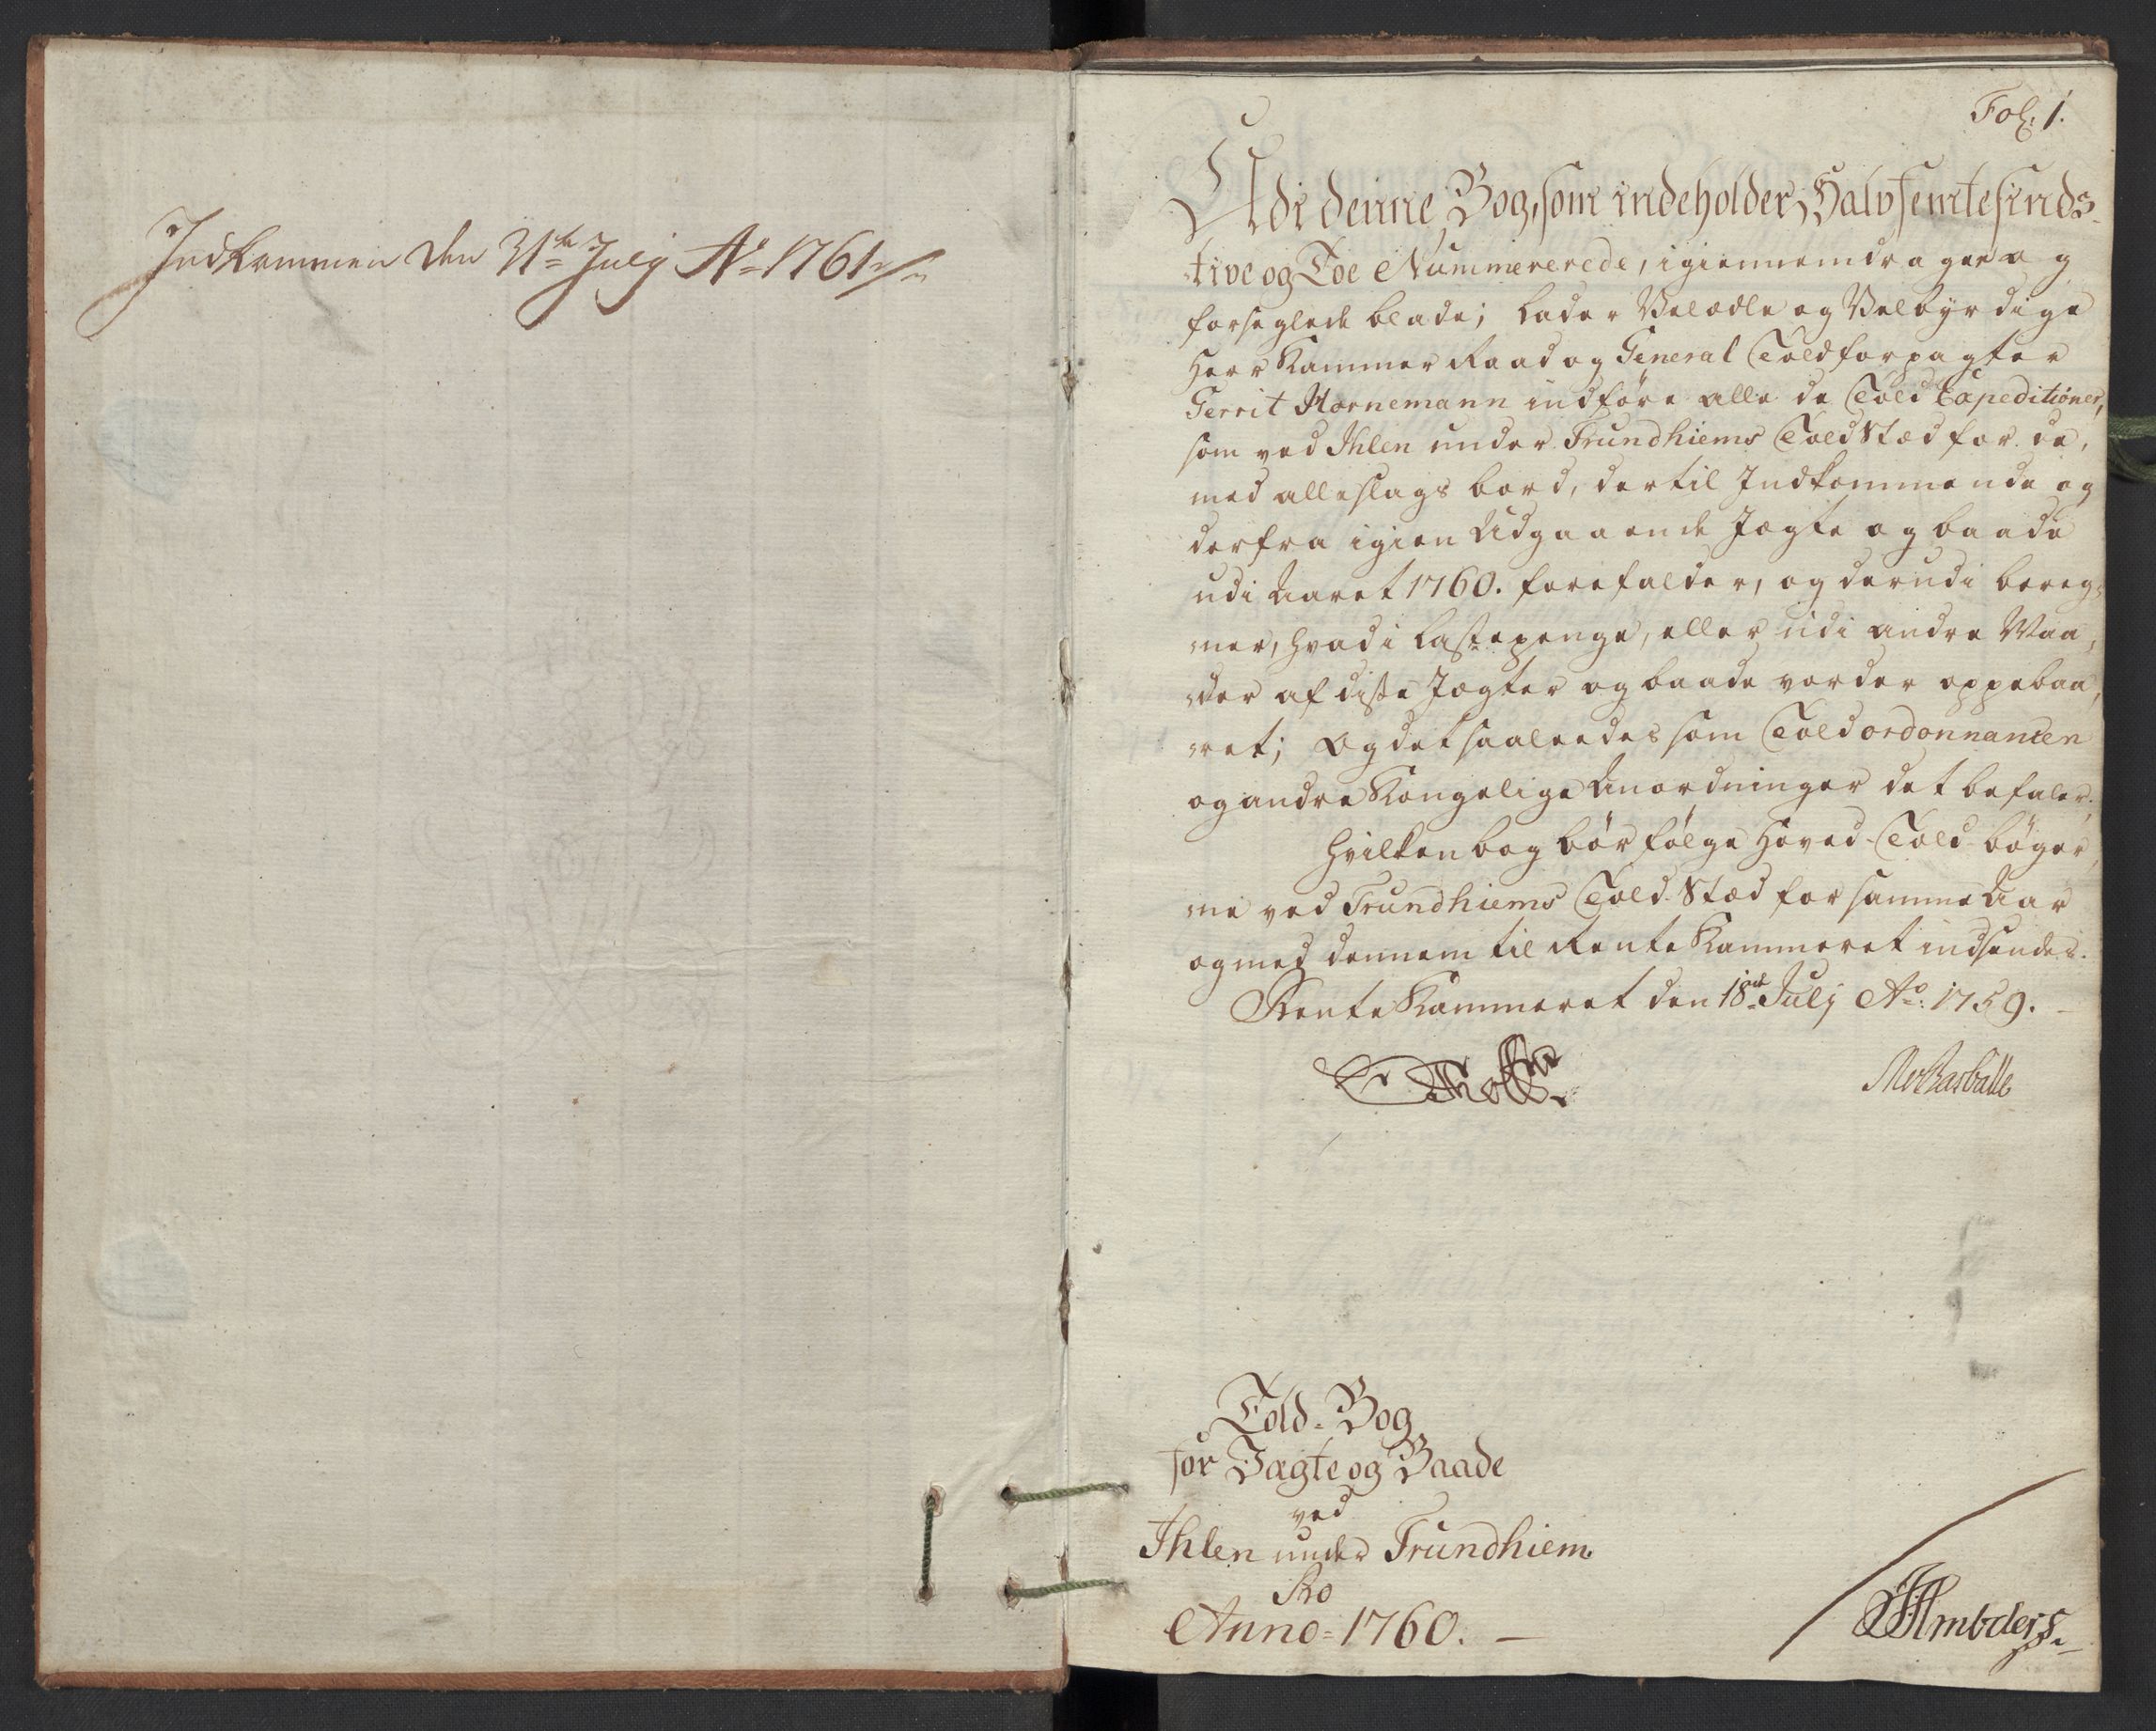 Indkommen den 31te Julij Ao 1761
Fol: 1.
Udi denne Bog, som indeholder Halvfemtesinds-
tive og Toe Nummererede, igiennemdragne og
forseglede blade; lader Velædle og Velbyrdige
Herr Kammer Raad og General Toldforpagter
Gerrit Hornemann indføre alle de Told Expeditioner,
som ved Ihlen under Trundhiems Told Stæd for de,
med alleslags bord, dertil Indkommende og
derfra igien Udgaaende Jægte og baade
udi Aaret 1760. forefalder, og derudi bereg-
ner, hvad i Lastepenge, eller udi andre Maa-
der af disse Jægter og baade vorder oppebaa-
ret; Og det saaledes som Told ordonnancen
og andre Kongelige Anordninger det befaler.
Hvilken bog bör følge Hoved-Told-bøger-
ne ved Trundhiems Told-Stæd for samme Aar
og med dennem til Rente Kammeret indsendes.
Rente Kammeret den 18de Julij Ao: 1759.
Told-Bog
for Jægte og Baade
ved
Ihlen under Trundhiem
Pro
Anno=1760.